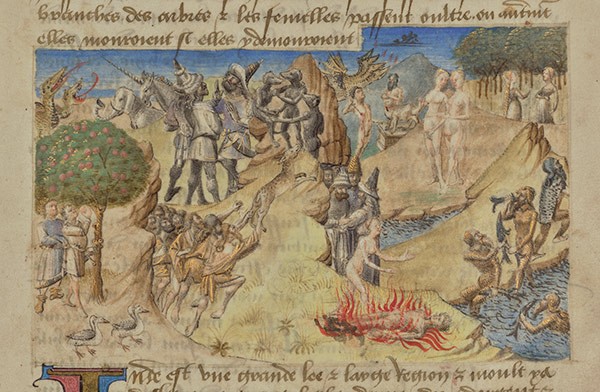 branches des arbres & les fueilles passent oultre ou autrement
elles mouroient se elles y demouroient
Inde est une grande lee & large region & moult pa